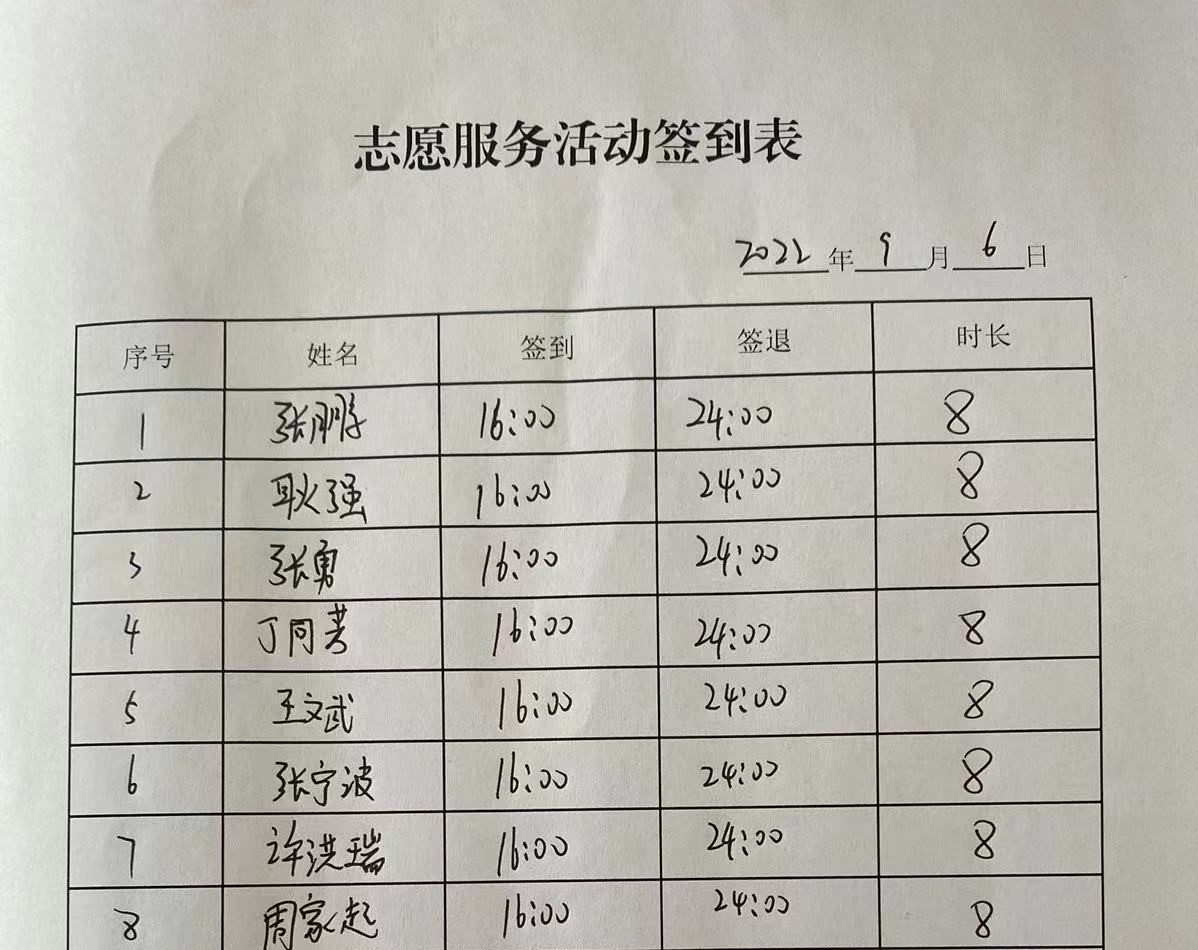 志愿服务活动签到表
2022年9月6日
序号 姓名 签到 签退 时长
1 张鹏 16:00 24:00 8
2 耿强 16:00 24:00 8
3 张勇 16:00 24:00 8
4 丁同芳 16:00 24:00 8
5 王文武 16:00 24:00 8
6 张宁波 16:00 24:00 8
7 许洪瑞 16:00 24:00 8
8 周家起 16:00 24:00 8